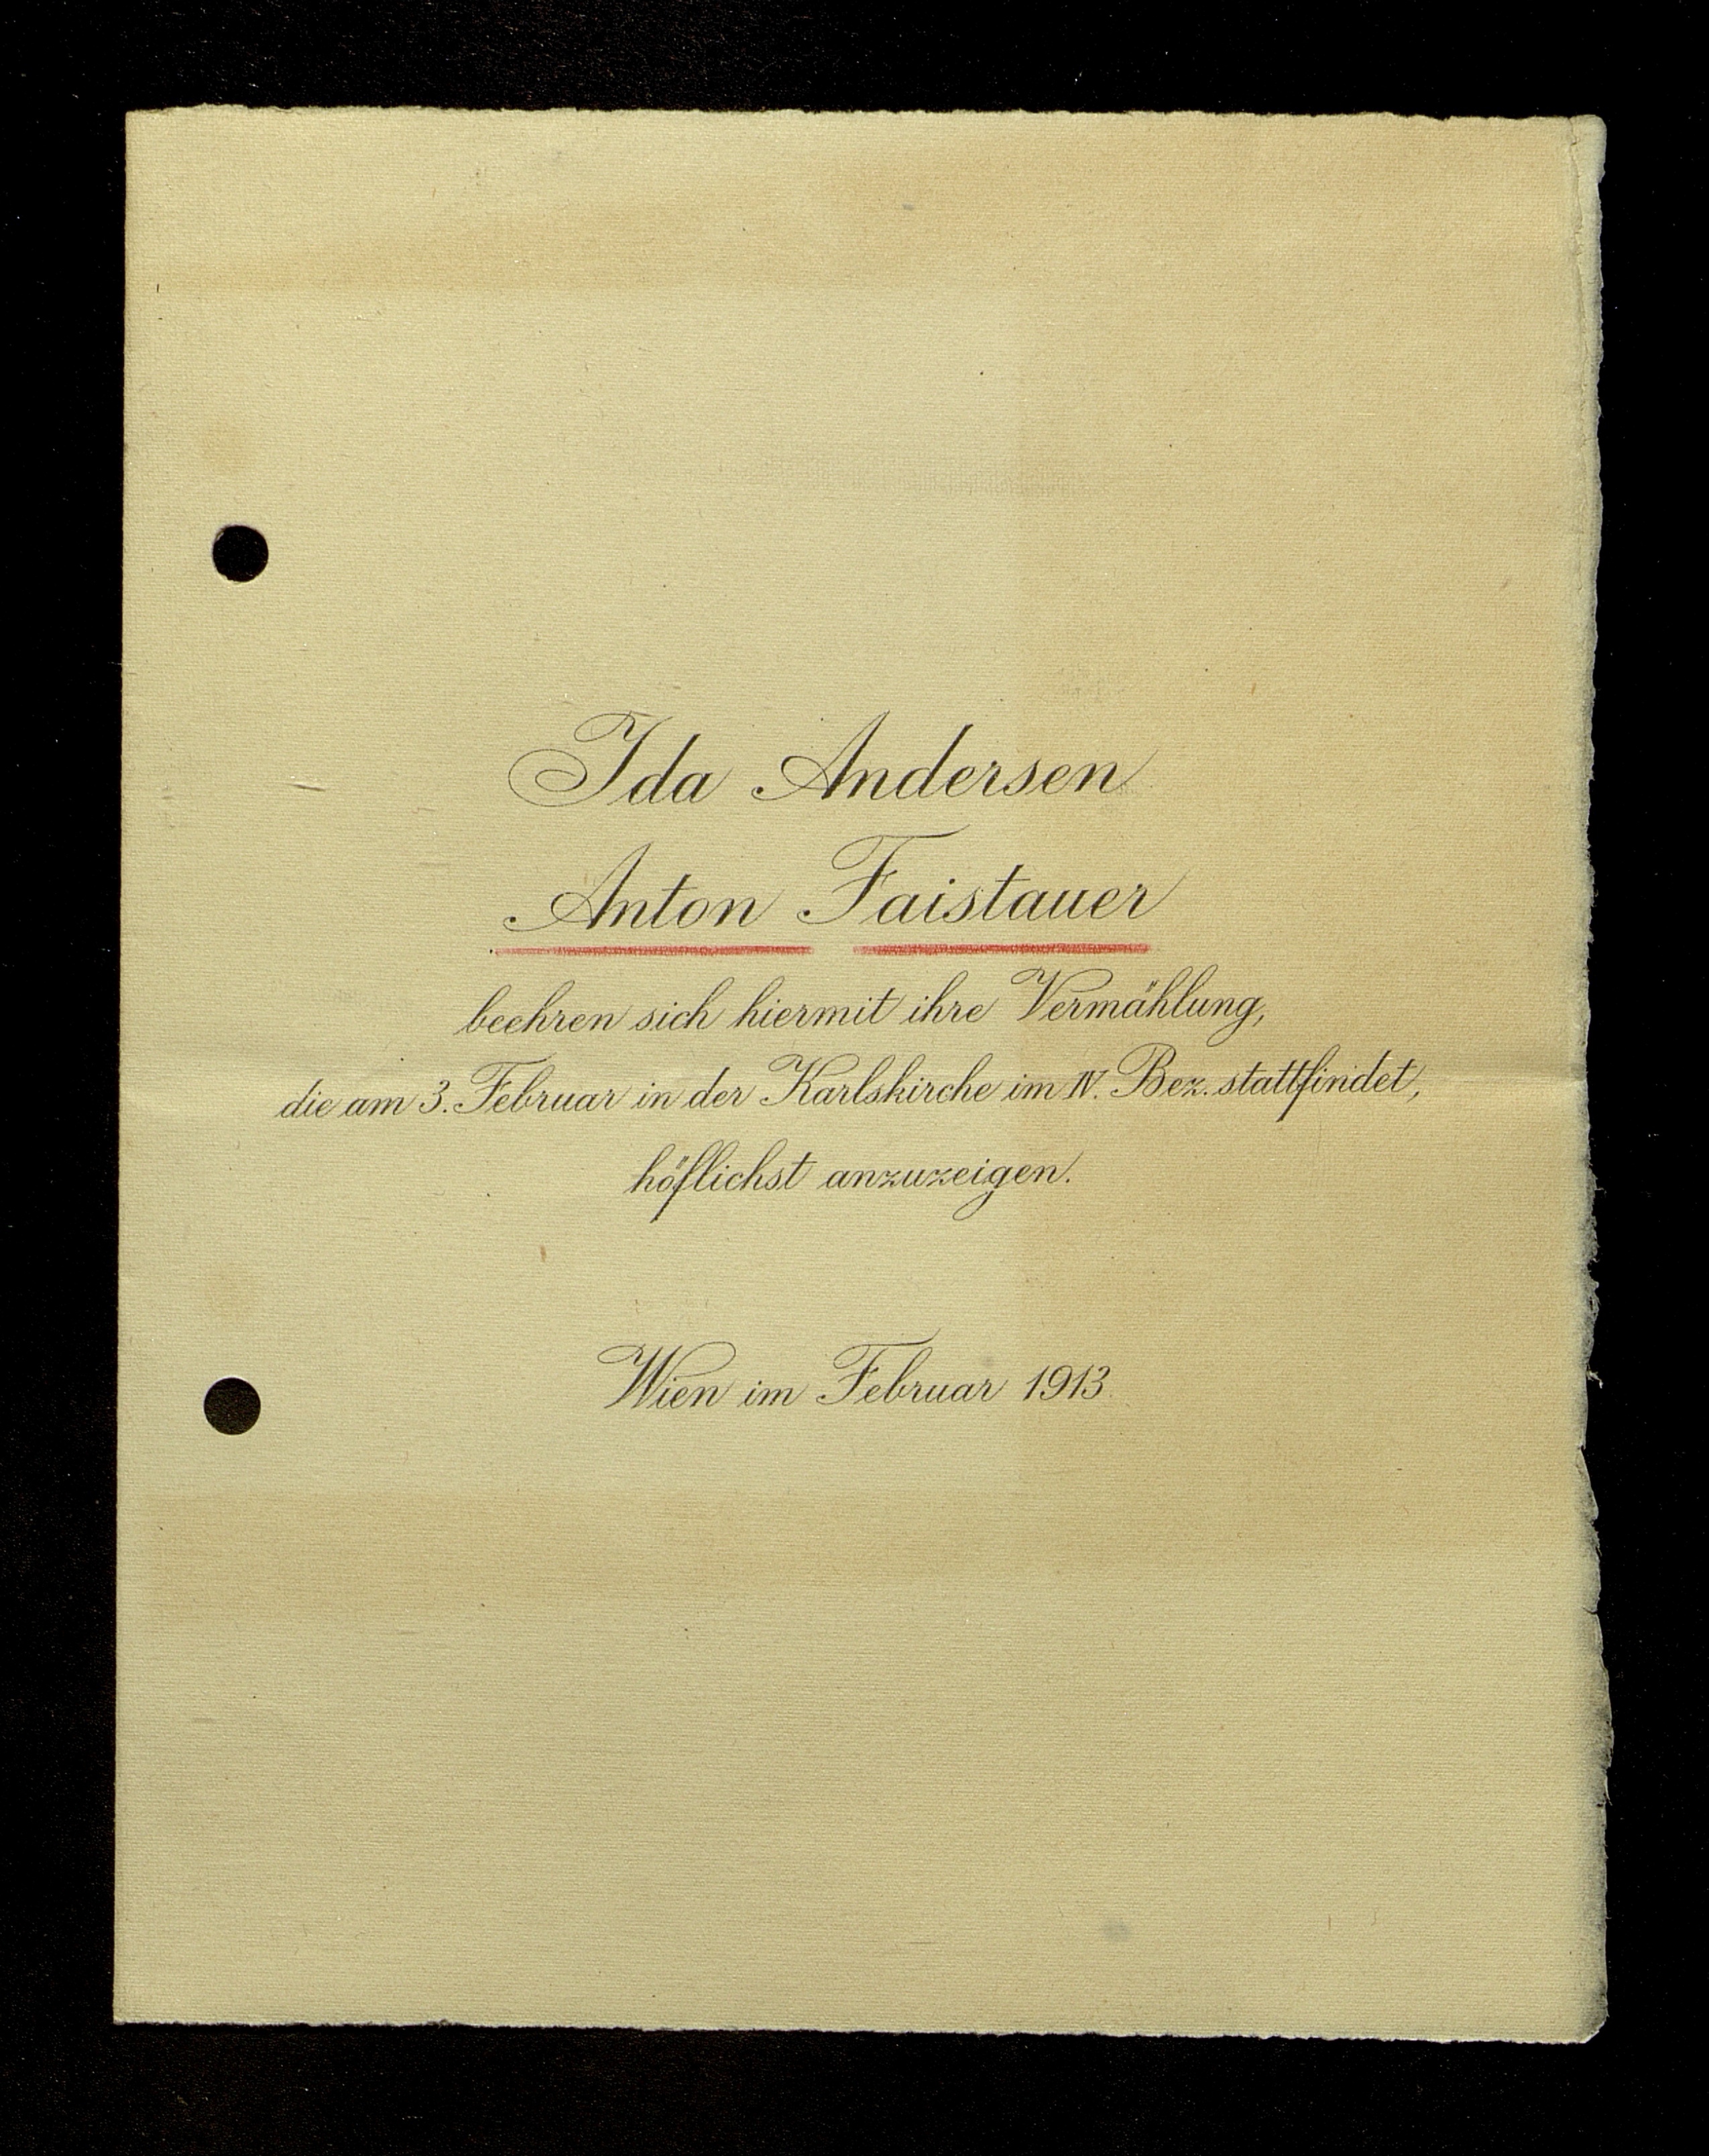 Ida Andersen
Anton Faistauer
beehren sich hiermit ihre Vermählung,
die am 3. Februar in der Karlskirche im IV. Bez. stattfindet,
höflichst anzuzeigen.
Wien im Februar 1913.